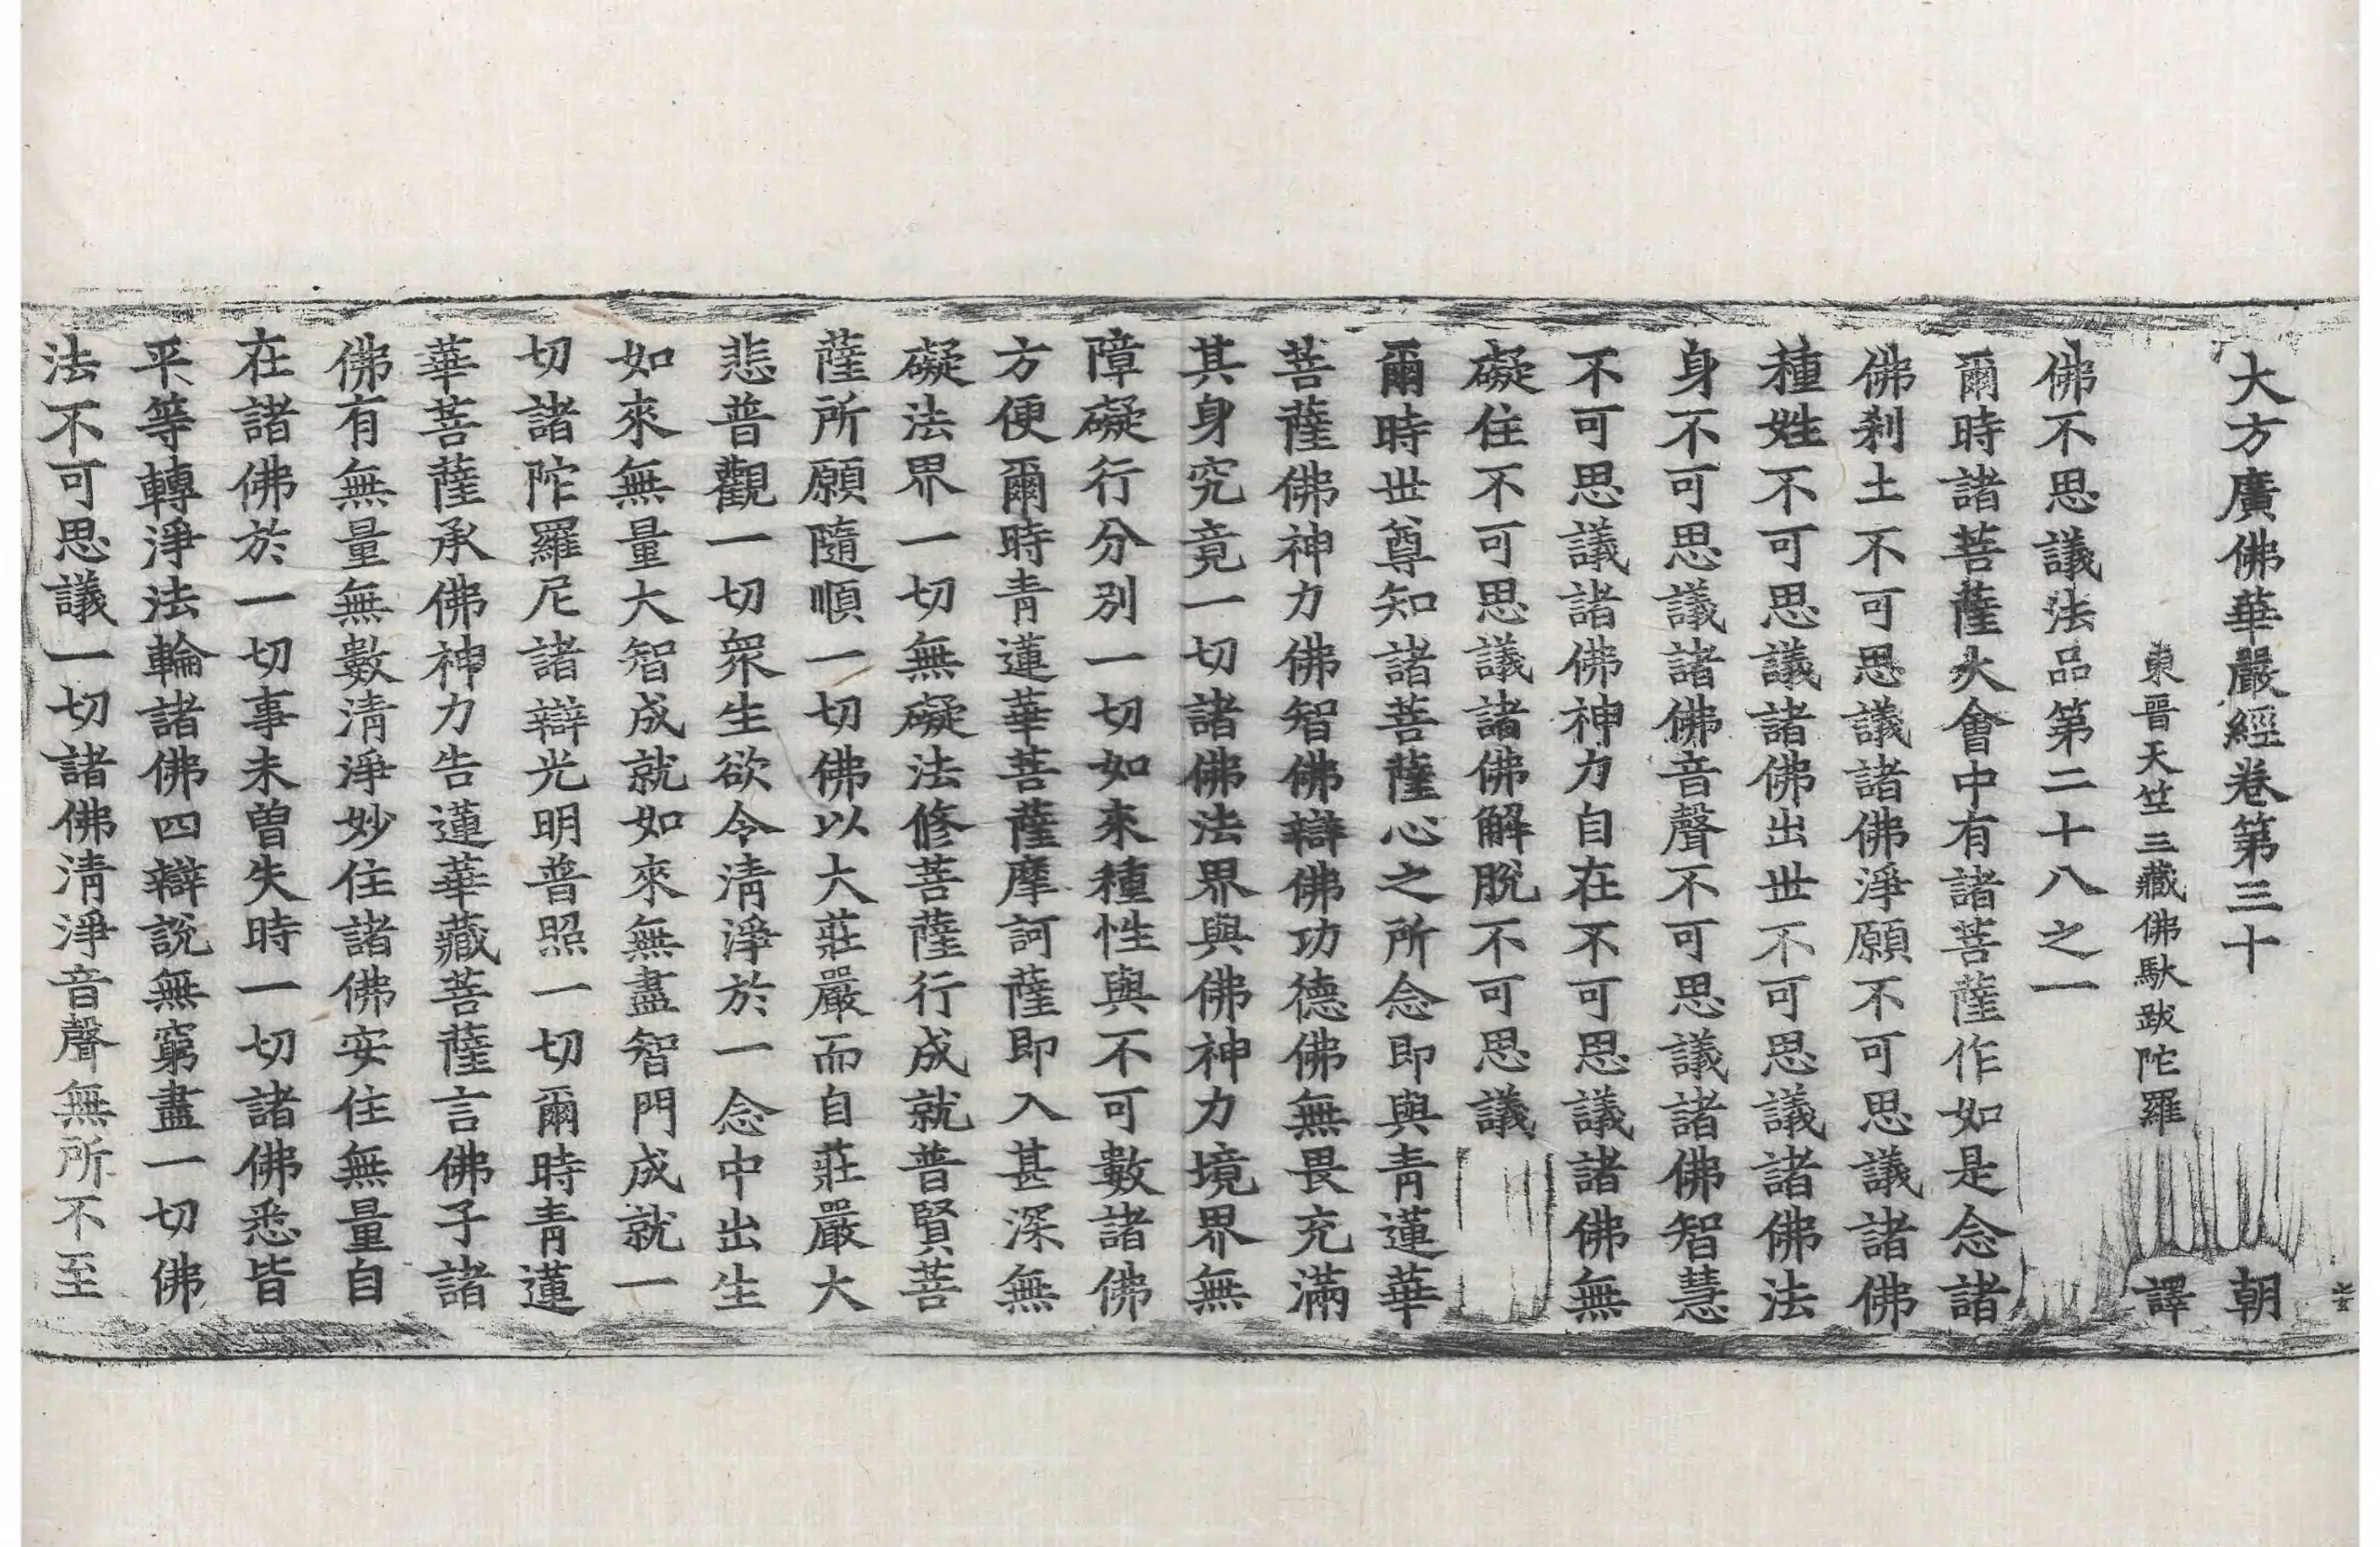 大方廣佛華嚴經卷第三十　朝
東晉天竺三藏佛馱跋陀羅　譯
佛不思議法品第二十八之一
爾時諸菩薩大會中有諸菩薩作如是念諸
佛刹土不可思議諸佛淨願不可思議諸佛
種姓不可思議諸佛出世不可思議諸佛法
身不可思議諸佛音聲不可思議諸佛智慧
不可思議諸佛神力自在不可思議諸佛無
礙住不可思議諸佛解脫不可思議
爾時世尊知諸菩薩心之所念即與青蓮華
菩薩佛神力佛智佛辯佛功德佛無畏充滿
其身究竟一切諸佛法界與佛神力境界無
障礙行分別一切如来種性與不可數諸佛
方便爾時青蓮華菩薩摩訶薩即入甚深無
礙法界一切無礙法修菩薩行成就普賢菩
薩所願隨順一切佛以大莊嚴而自莊嚴大
悲普觀一切眾生欲令清淨於一念中出生
如來無量大智成就如來無盡智門成就一
切諸陀羅尼諸辯光明普照一切爾時青蓮
華菩薩承佛神力告蓮華藏菩薩言佛子諸
佛有無量無數清淨妙住諸佛安住無量自
在諸佛於一切事未曽失時一切諸佛悉皆
平等轉淨法輪諸佛四辯說無窮盡一切佛
法不可思議一切諸佛清淨音聲無所不至